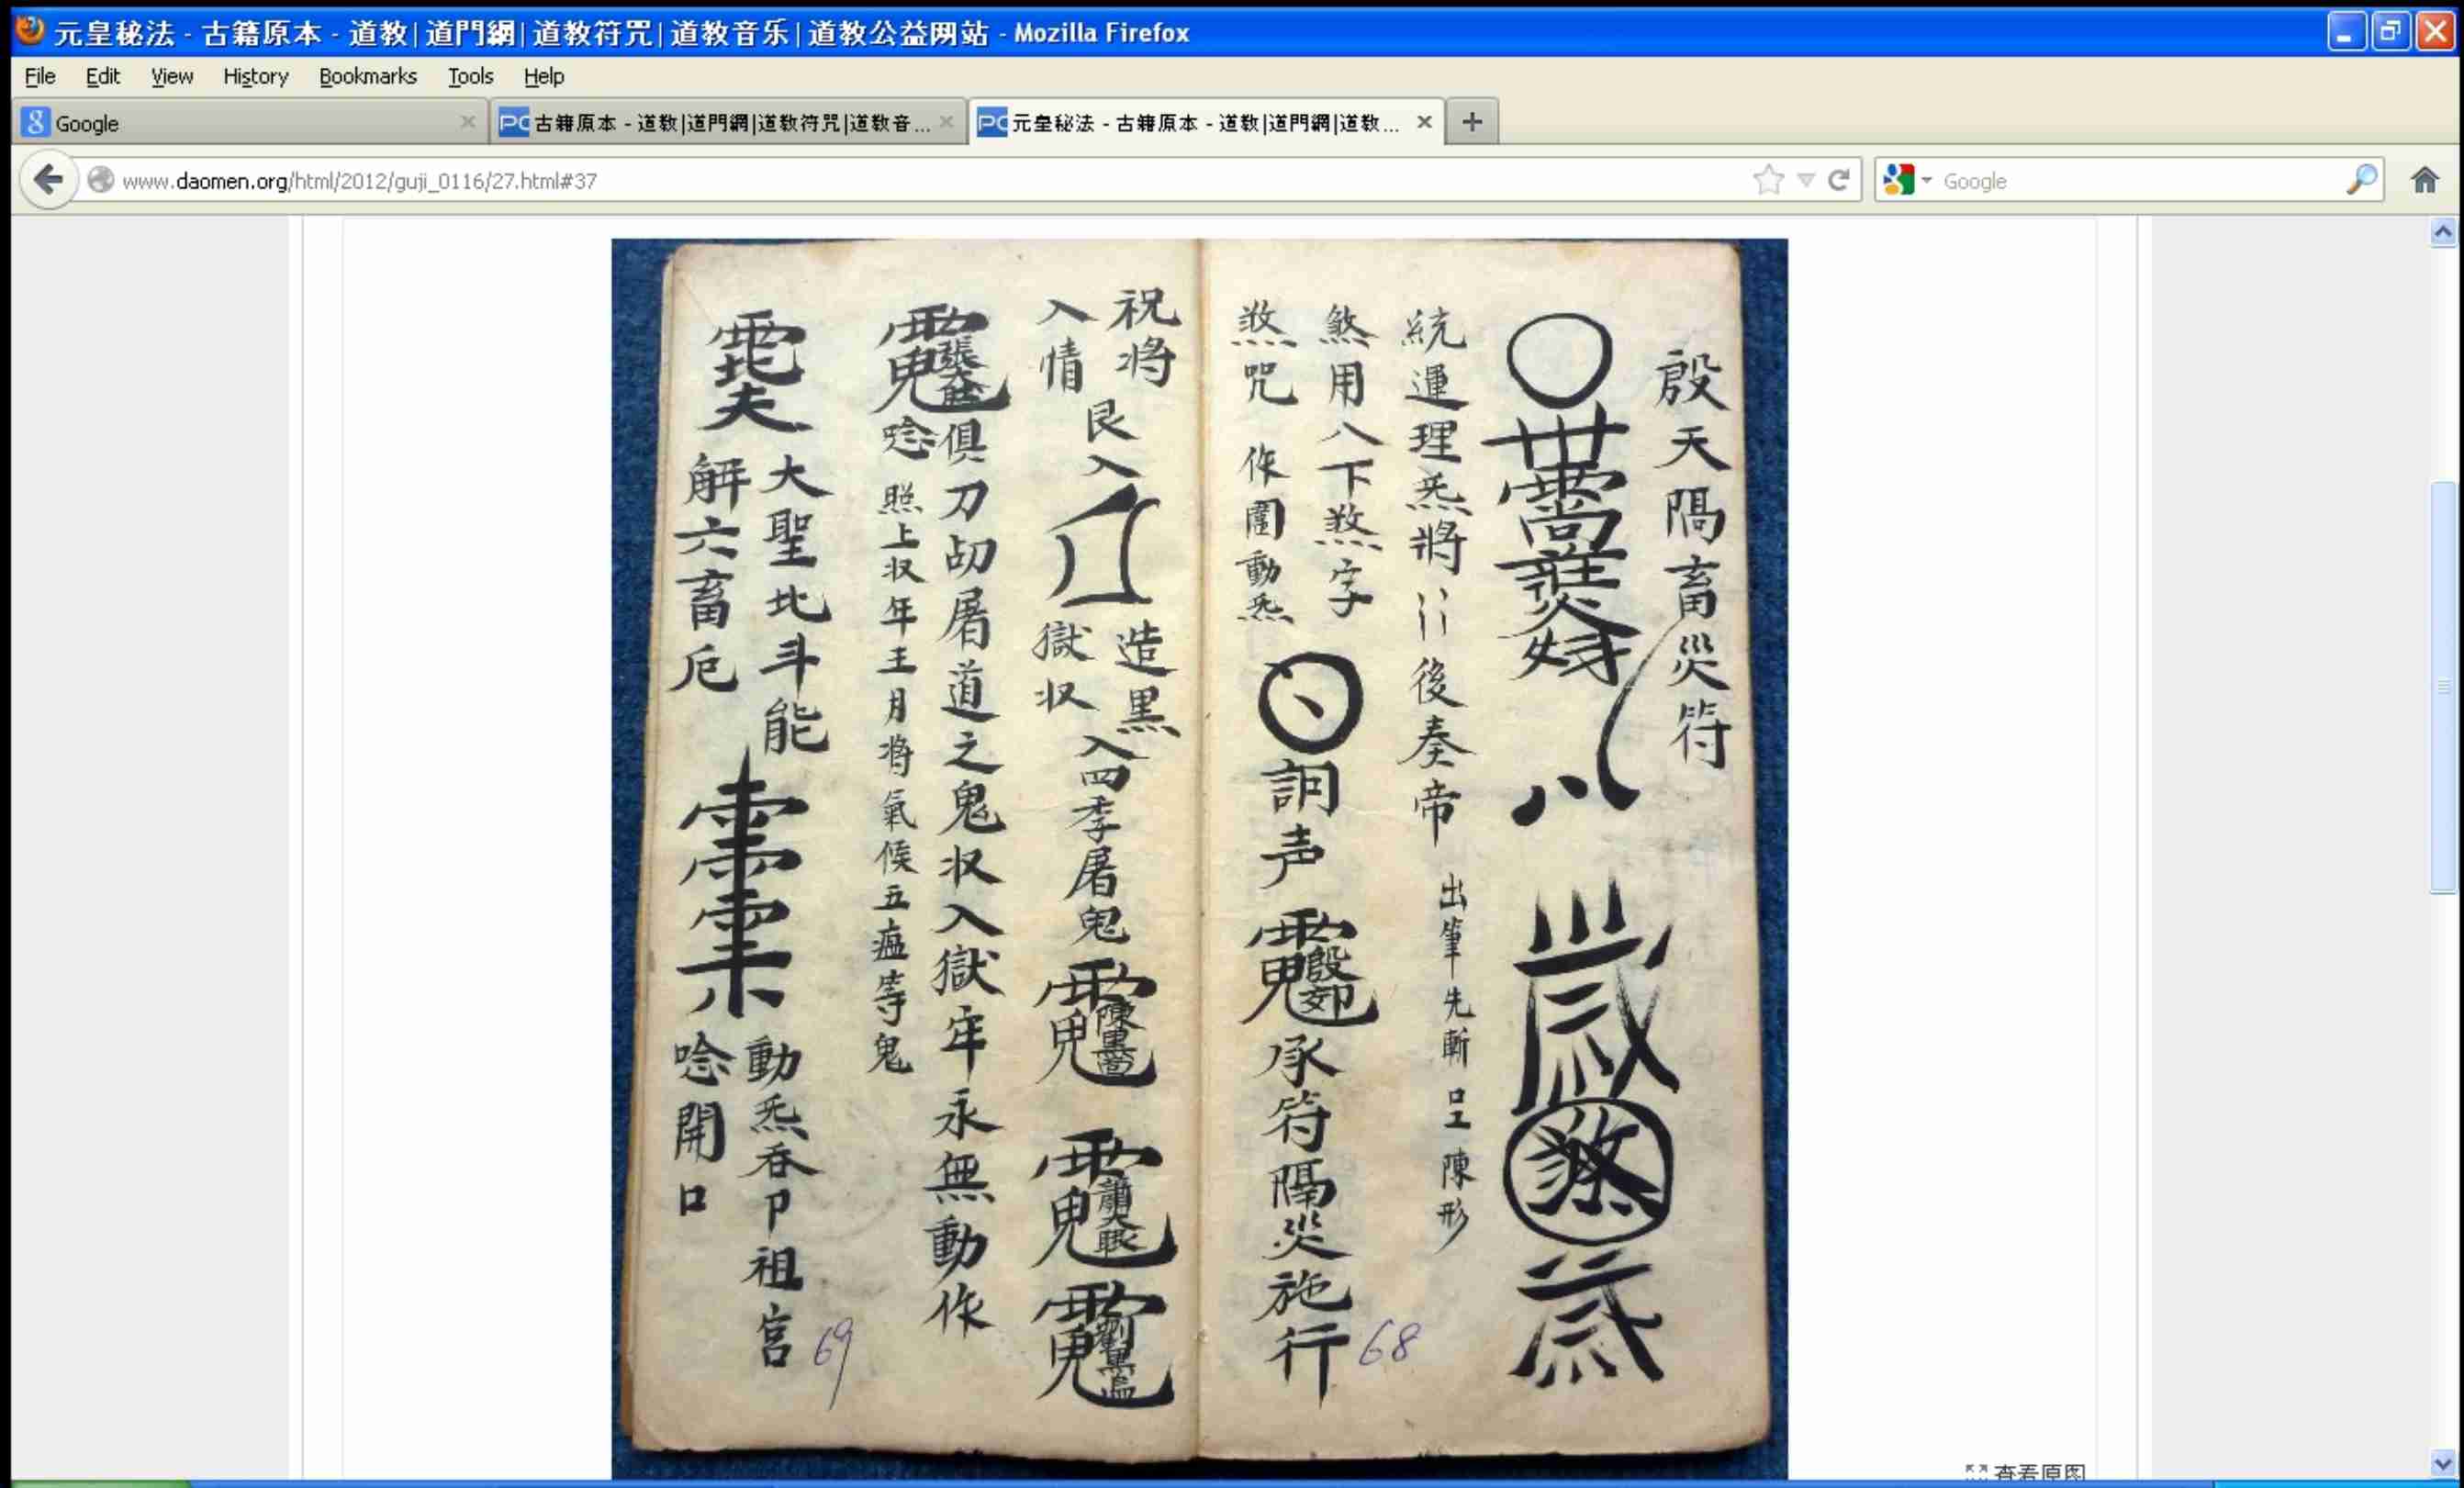 元皇秘法 - 古籍原本 - 道教|道門網|道教符咒|道教音乐|道教公益网站 - Mozilla Firefox
File Edit View History Bookmarks Tools Help
Google
古籍原本 - 道教|道門網|道教符咒|道教音...
元皇秘法 - 古籍原本 - 道教|道門網|道教...
www.daomen.org/html/2012/guji_0116/27.html#37
Google
殷天隔畜災符
統運理炁將
後奏帝
出筆先斬
陳形
煞用八下煞字
煞咒
作圍動炁
承符隔災施行
68
祝將
入情
艮入
造黑
獄収
入四季屠鬼
俱刀劫屠道之鬼収入獄牢永無動作
唸照上収年王月將氣候五瘟等鬼
大聖北斗能
解六畜厄
動炁吞卩祖宮
唸開口
69
查看原图